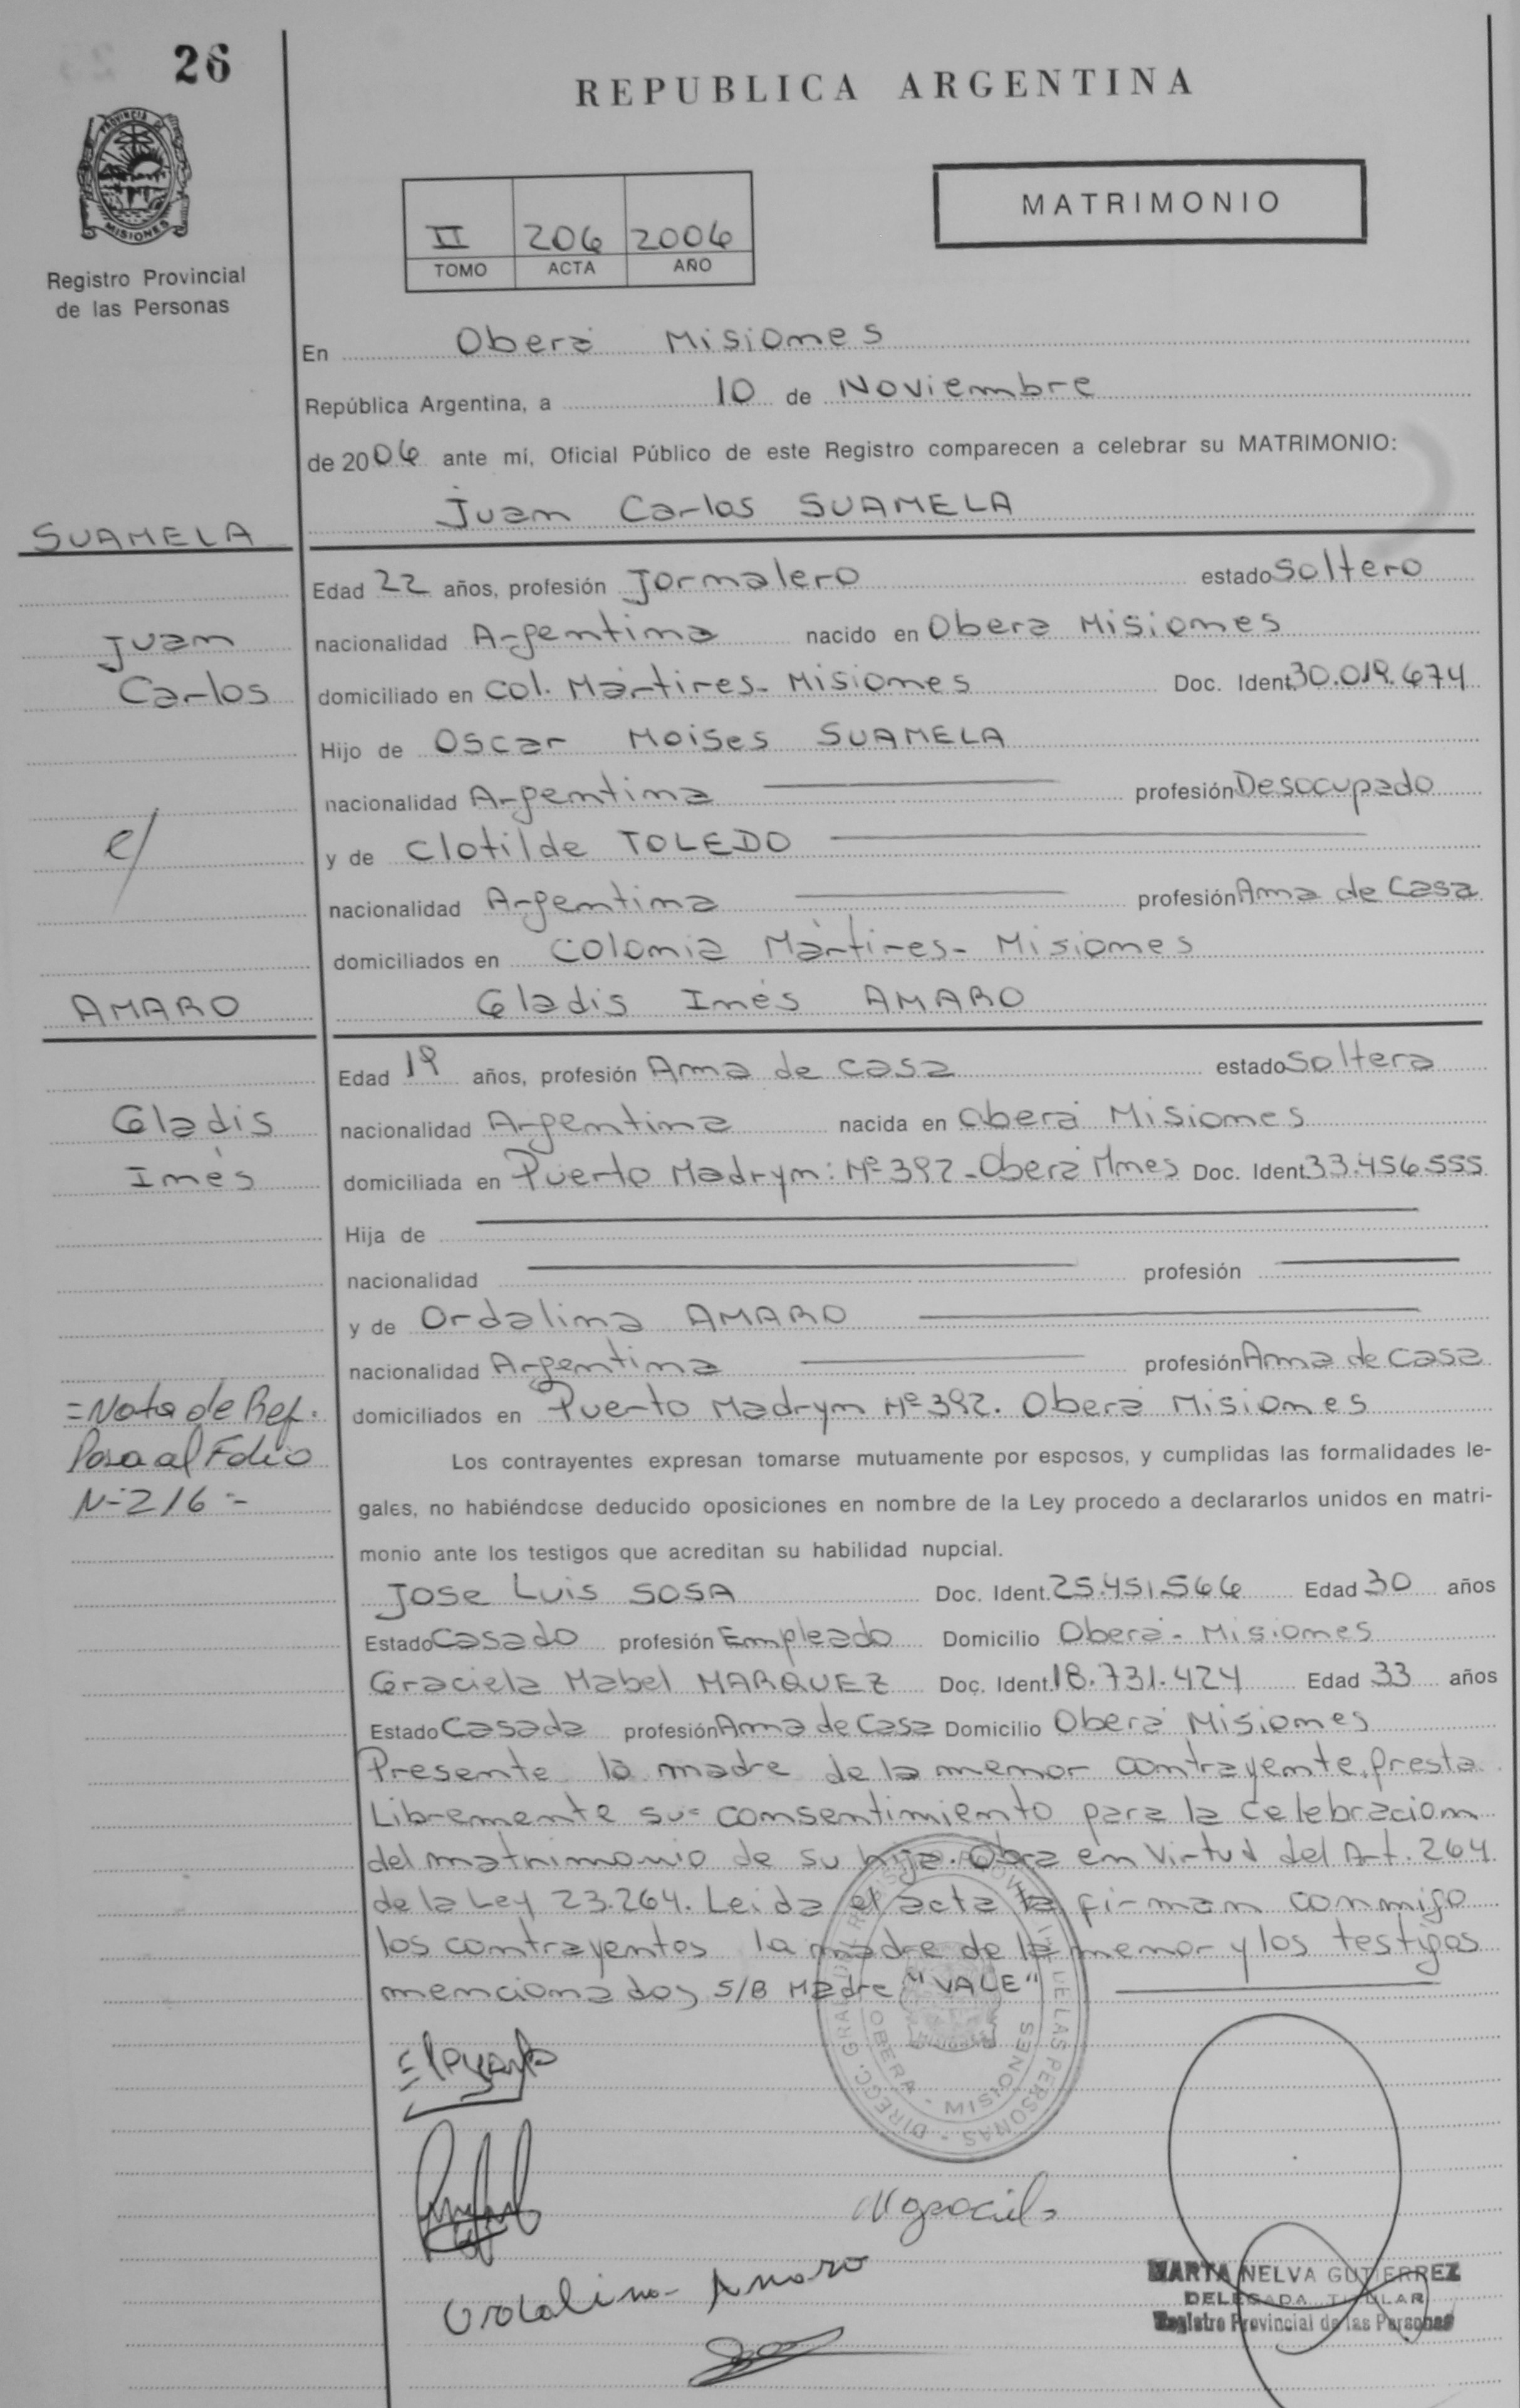 26
REPUBLICA ARGENTINA
PROVINCIA DE
MISIONES
Registro Provincial
de las Personas
MATRIMONIO
II 206 2006
TOMO ACTA AÑO
En Oberá Misiones
República Argentina, a 10 de Noviembre
de 2006 ante mí, Oficial Público de este Registro comparecen a celebrar su MATRIMONIO:
Juan Carlos SUAMELA
SUAMELA
Edad 22 años, profesión Jornalero estado Soltero
Juan nacionalidad Argentina nacido en Oberá Misiones
Carlos domiciliado en Col. Mártires- Misiones Doc. Ident. 30.019.674
Hijo de Oscar Moises SUAMELA
nacionalidad Argentina profesión Desocupado
c/ y de Clotilde TOLEDO
nacionalidad Argentina profesión Ama de Casa
domiciliados en Colonia Mártires- Misiones
AMARO Gladis Inés AMARO
Edad 19 años, profesión Ama de casa estado Soltera
Gladis nacionalidad Argentina nacida en Oberá Misiones
Inés domiciliada en Puerto Madryn: Nº 392-Oberá Mnes Doc. Ident. 33.456.555
Hija de
nacionalidad profesión
y de Ordalina AMARO
nacionalidad Argentina profesión Ama de casa
=Nota de Ref. domiciliados en Puerto Madryn Nº 392. Oberá Misiones
Pasa al Folio Los contrayentes expresan tomarse mutuamente por esposos, y cumplidas las formalidades le-
N-216- gales, no habiéndose deducido oposiciones en nombre de la Ley procedo a declararlos unidos en matri-
monio ante los testigos que acreditan su habilidad nupcial.
Jose Luis SOSA Doc. Ident. 25.451.566 Edad 30 años
Estado Casado profesión Empleado Domicilio Oberá- Misiones
Graciela Mabel MARQUEZ Doc. Ident. 18.731.424 Edad 33 años
Estado Casada profesión Ama de Casa Domicilio Oberá Misiones
Presente la madre de la menor contrayente, presta
Libremente su consentimiento para la celebracion
del matrimonio de su hija. Obra en Virtud del Art. 264
de la Ley 23.264. Leida el acta la firman conmigo
los contrayentes la madre de la menor y los testigos
mencionados S/B Madre "VALE"
OBERA - MISIONES
Ordalina Amaro
MARTA NELVA GUTIERREZ
DELEGADA TITULAR
Registro Provincial de las Personas